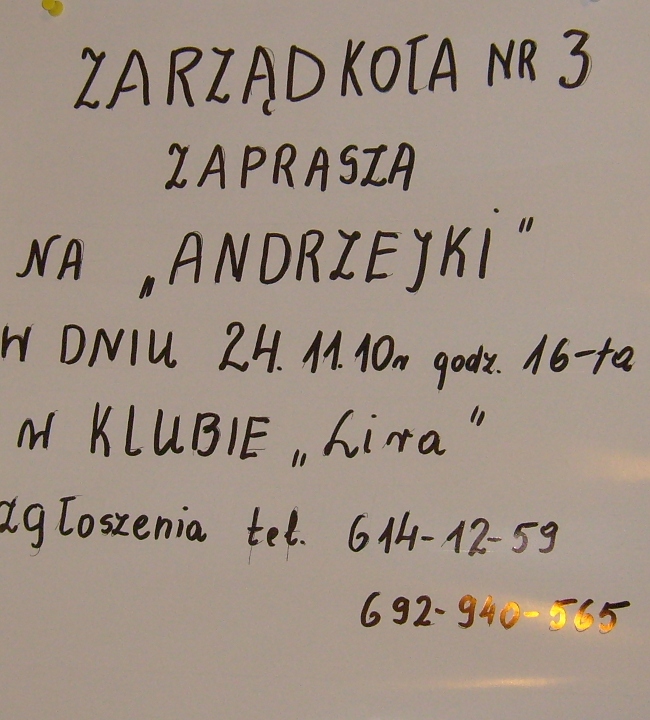 ZARZĄD KOŁA NR 3
ZAPRASZA
NA „ANDRZEJKI"
W DNIU 24.11.10r godz. 16-ta
W KLUBIE „Lira"
zgłoszenia tel. 614-12-59
692-940-565